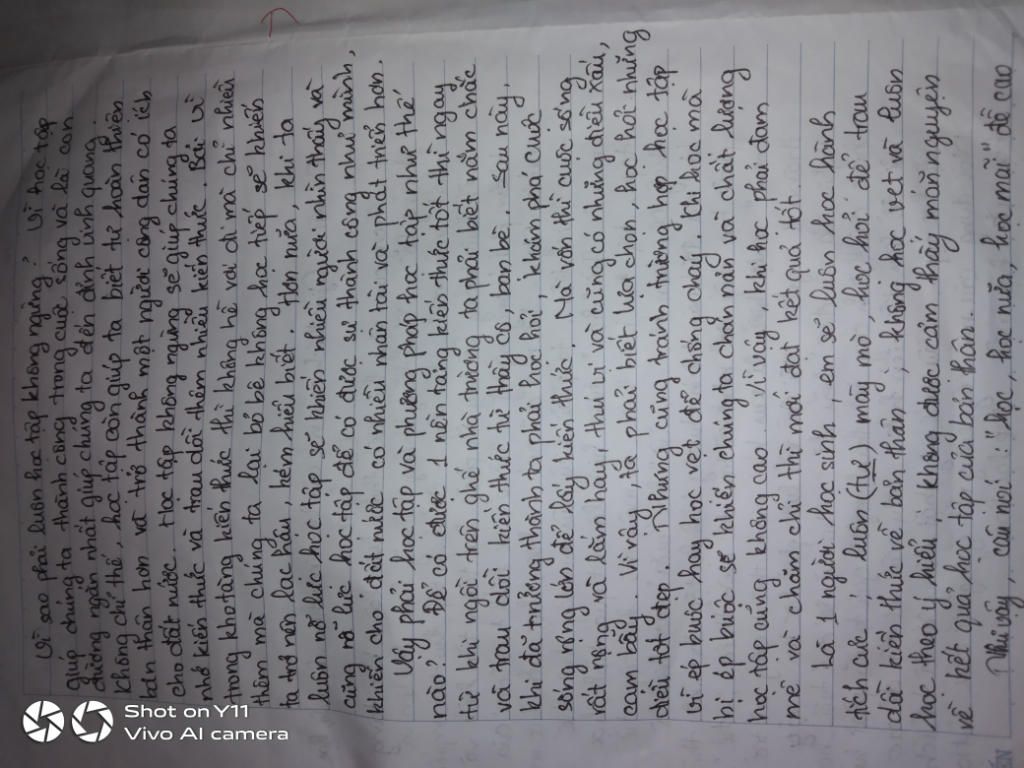 Vì sao phải luôn học tập không ngừng? Vì học tập
giúp chúng ta thành công trong cuộc sống và là con
đường ngắn nhất giúp chúng ta đến đỉnh vinh quang.
Không chỉ thế, học tập còn giúp ta biết tự hoàn thiện
bản thân hơn và trở thành một người công dân có ích
cho đất nước. Học tập không ngừng sẽ giúp chúng ta
nhớ kiến thức và trau dồi thêm nhiều kiến thức. Bởi vì
trong kho tàng kiến thức thì không hề vơi đi mà chỉ nhiều
thêm mà chúng ta lại bỏ bê không học tiếp sẽ khiến
ta trở nên lạc hậu, kém hiểu biết. Hơn nữa, khi ta
luôn nỗ lực học tập sẽ khiến nhiều người nhìn thấy và
cũng nỗ lực học tập để có được sự thành công như mình,
khiến cho đất nước có nhiều nhân tài và phát triển hơn.
Vậy phải học tập và phương pháp học tập như thế
nào? Để có được 1 nền tảng kiến thức tốt thì ngay
từ khi ngồi trên ghế nhà trường ta phải biết nắm chắc
và trau dồi kiến thức từ thầy cô, bạn bè. Sau này,
khi đã trưởng thành ta phải học hỏi, khám phá cuộc
sống rộng lớn để lấy kiến thức. Mà vốn thì cuộc sống
rất rộng và lắm hay, thú vị và cũng có những điều xấu,
cạm bẫy. Vì vậy, ta phải biết lựa chọn, học hỏi những
điều tốt đẹp. Nhưng cũng tránh trường hợp học tập
vì ép buộc hay học vẹt để chống cháy. Khi học mà
bị ép buộc sẽ khiến chúng ta chán nản và chất lượng
học tập cũng không cao. Vì vậy, khi học phải đam
mê và chăm chỉ thì mới đạt kết quả tốt.
Là 1 người học sinh, em sẽ luôn học hành
tích cực, luôn (tự) mày mò, học hỏi để trau
dồi kiến thức về bản thân, không học vẹt và luôn
học theo ý hiểu không được cảm thấy mãn nguyện
về kết quả học tập của bản thân.
Như vậy, câu nói: "học, học nữa, học mãi" đề cao
Shot on Y11
Vivo AI camera